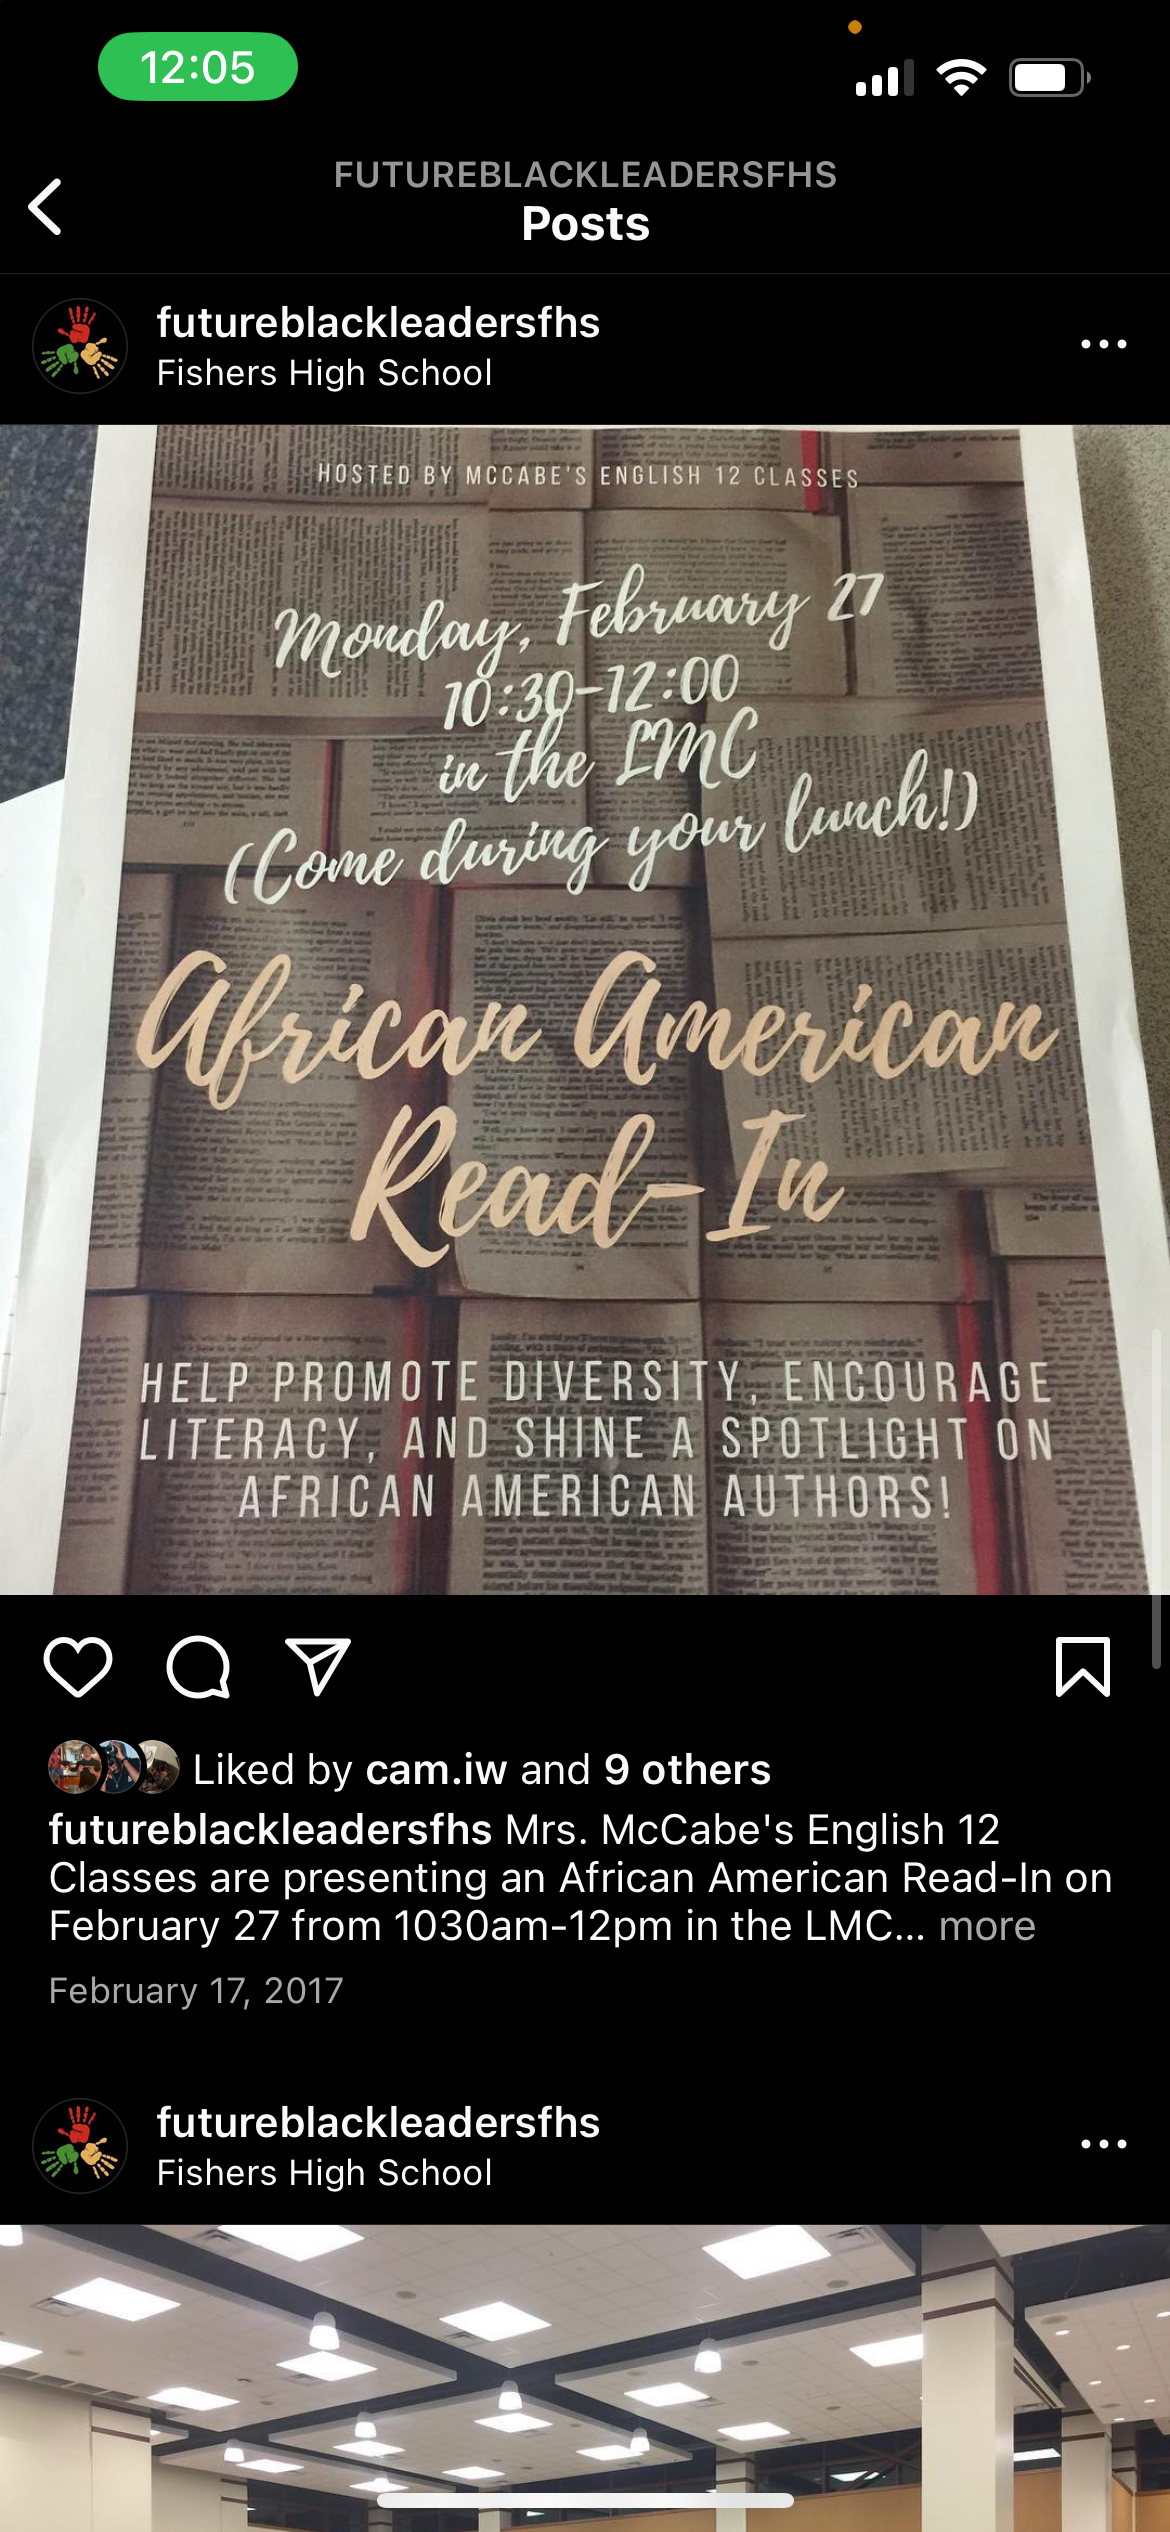 12:05
FUTUREBLACKLEADERSFHS
Posts
futureblackleadersfhs
Fishers High School
HOSTED BY MCCABE'S ENGLISH 12 CLASSES
Monday, February 27
10:30-12:00
in the LMC
(Come during your lunch!)
African American
Read-In
HELP PROMOTE DIVERSITY, ENCOURAGE
LITERACY, AND SHINE A SPOTLIGHT ON
AFRICAN AMERICAN AUTHORS!
Liked by cam.iw and 9 others
futureblackleadersfhs Mrs. McCabe's English 12
Classes are presenting an African American Read-In on
February 27 from 1030am-12pm in the LMC... more
February 17, 2017
futureblackleadersfhs
Fishers High School